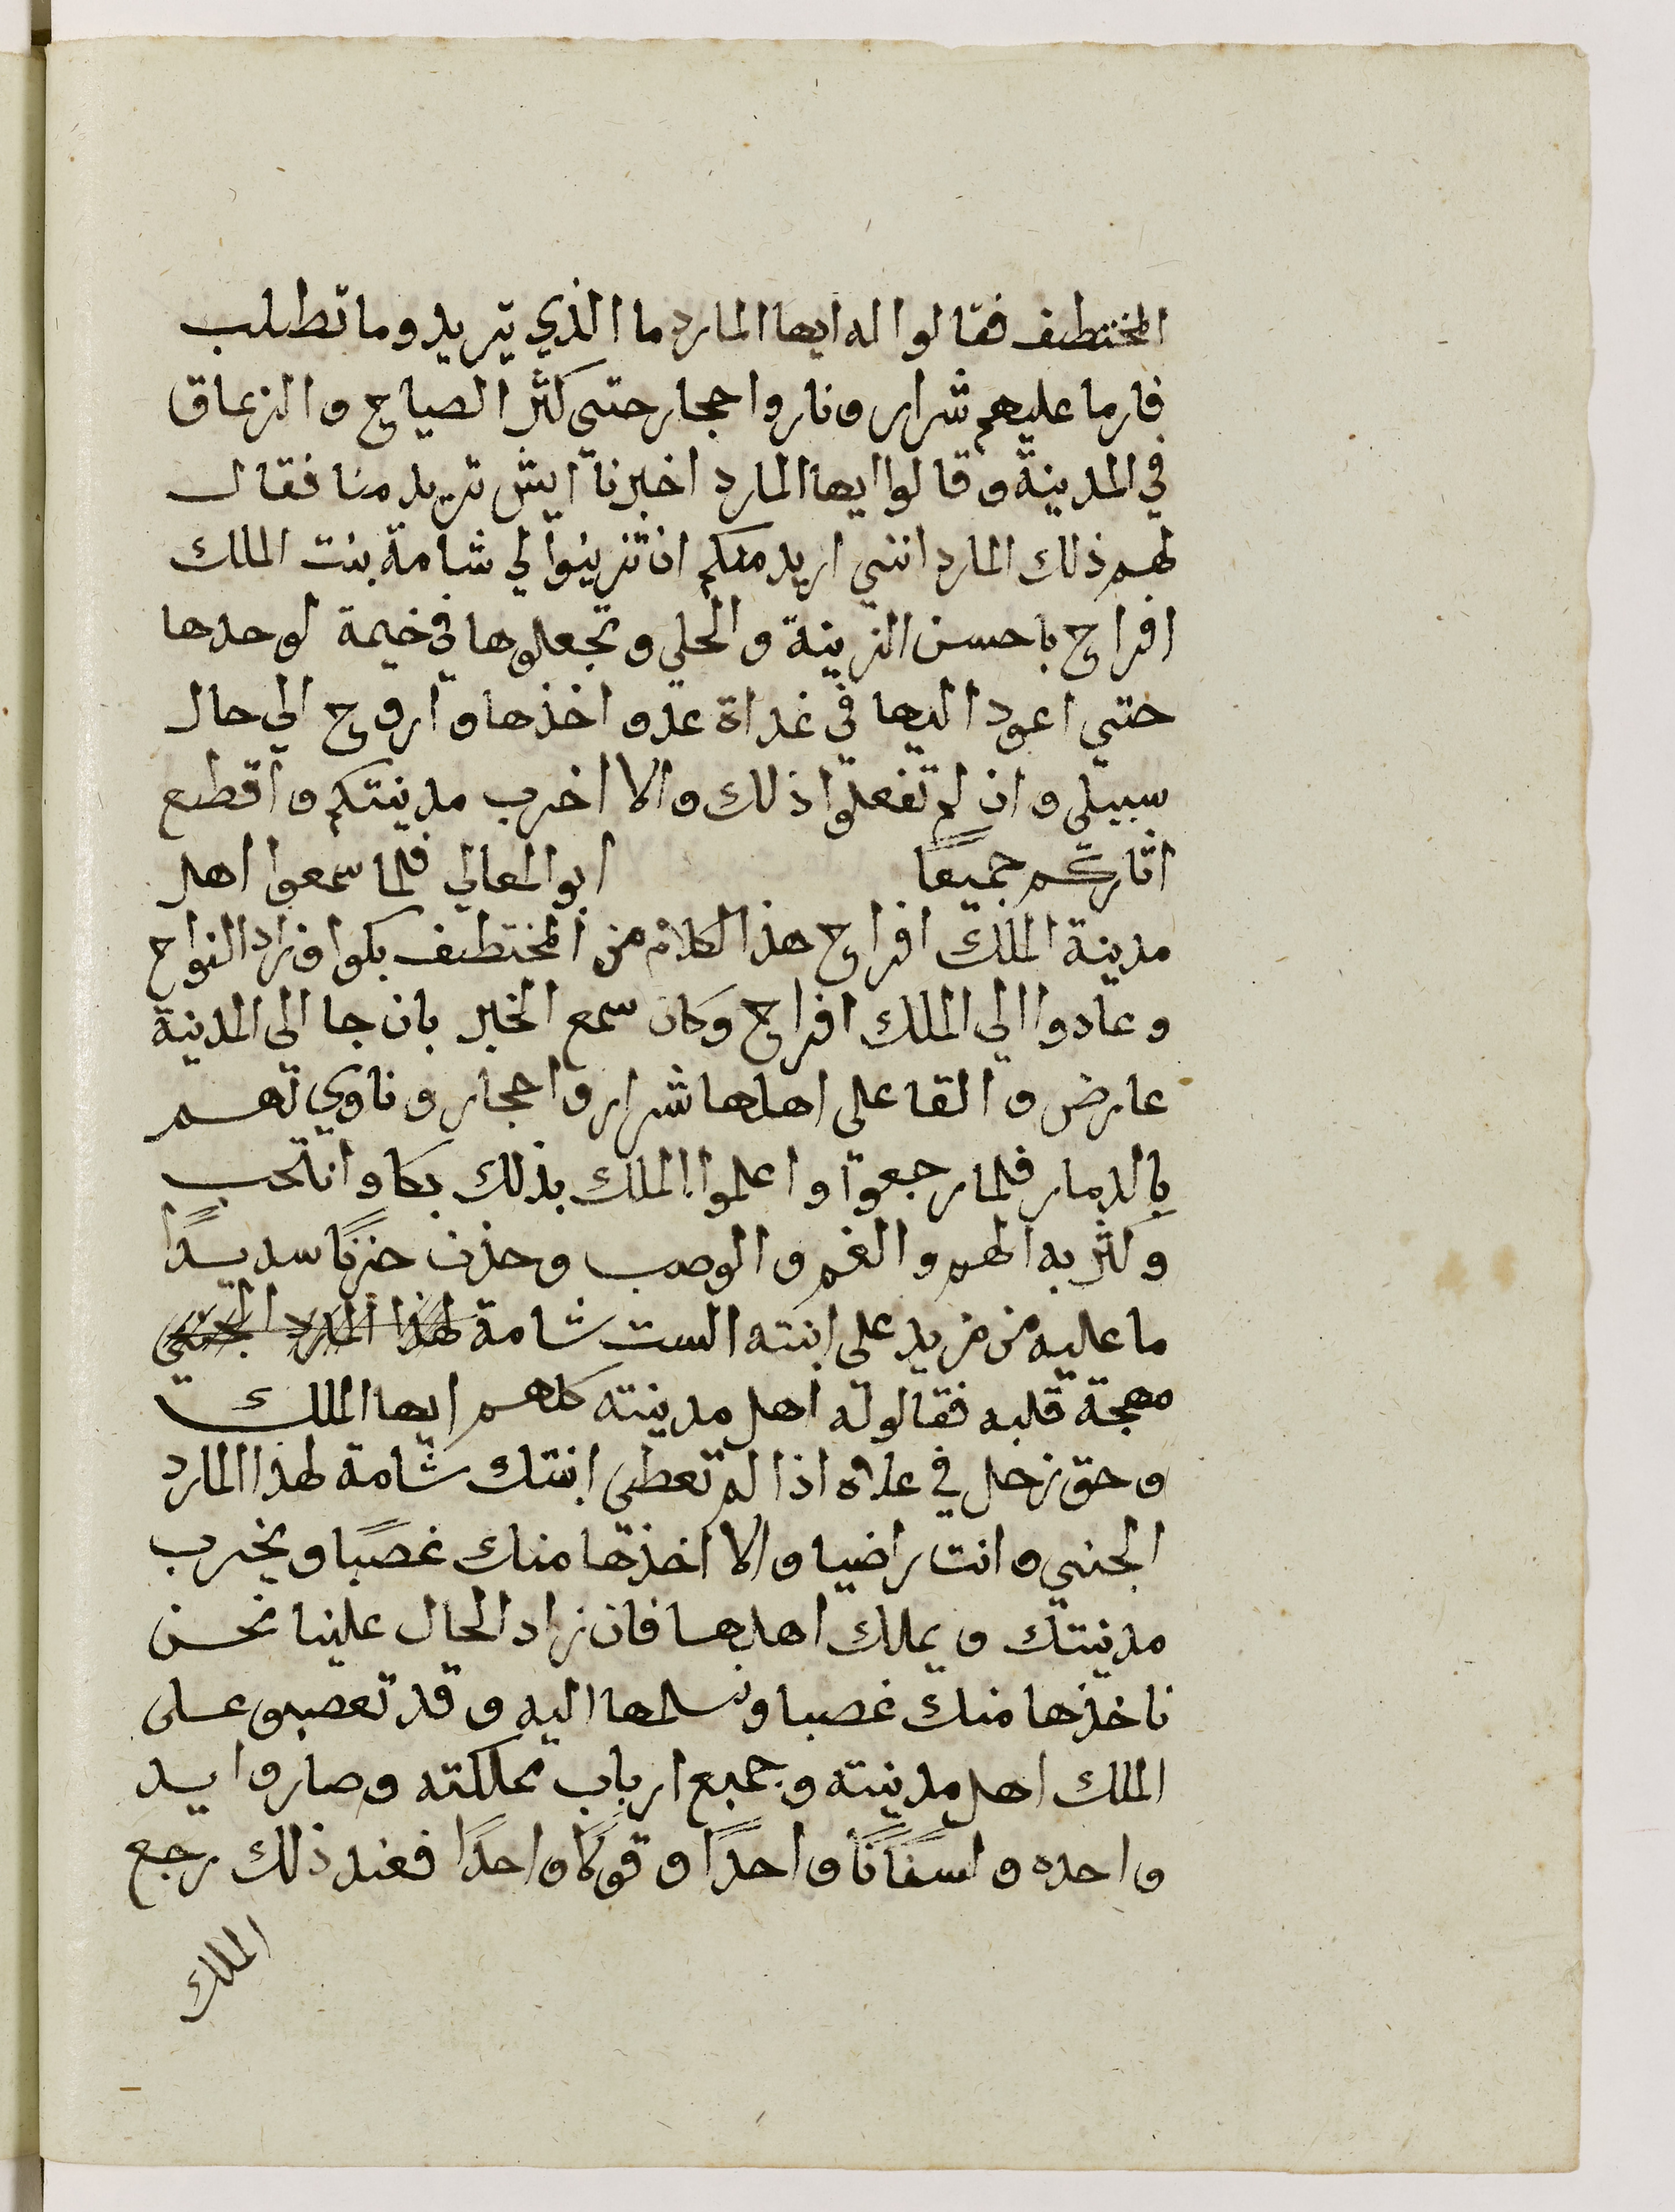 المختطف فقالوا له ايها المارد ما الذي تريد وما تطلب
فارما عليهم شرار ونار واحجار حتى كثر الصياح والزعاق
في المدينة وقالوا ايها المارد اخبرنا ايش تريد منا فقال
لهم ذلك المارد انني اريد منكم ان تزينوا لي شامة بنت الملك
افراح باحسن الزينة والحلي وتجعلوها في خيمة لوحدها
حتي اعود اليها في غداة غدو اخذها واروح الي حال
سبيلي وان لم تفعلوا ذلك والا اخرب مدينتكم واقطع
اثاركم جميعًا ابو المعالي فلما سمعوا اهل
مدينة الملك افراح هذا الكلام من المختطف بكوا وزاد النواح
وعادوا الي الملك افراح وكان سمع الخبر بان جا الى المدينة
عارض والقا على اهلها شرار واحجار وناوي لهم
بالدمار فلما رجعوا واعلموا الملك بذلك بكا وانتحب
وكثر به الهم والغم والوصب وحذن حزنًا سديدًا
ما عليه من مزيد على ابنته الست شامة لهذا المارد الجني
مهجة قلبه فقالوله اهل مدينته كلهم ايها الملك
وحق زحل في علاه اذا لم تعطي ابنتك شامة لهذا المارد
الجني وانت راضيا والا اخذها منك غصبًا ويخرب
مدينتك ويملك اهلها فان زاد الحال علينا نحن
ناخذها منك غصبا ونسلمها اليه وقد تعصبو على
الملك اهل مدينته وجميع ارباب مملكته وصاروا يد
واحده ولسانًا واحدًا وقولًا واحدًا فعند ذلك رجع
الملك